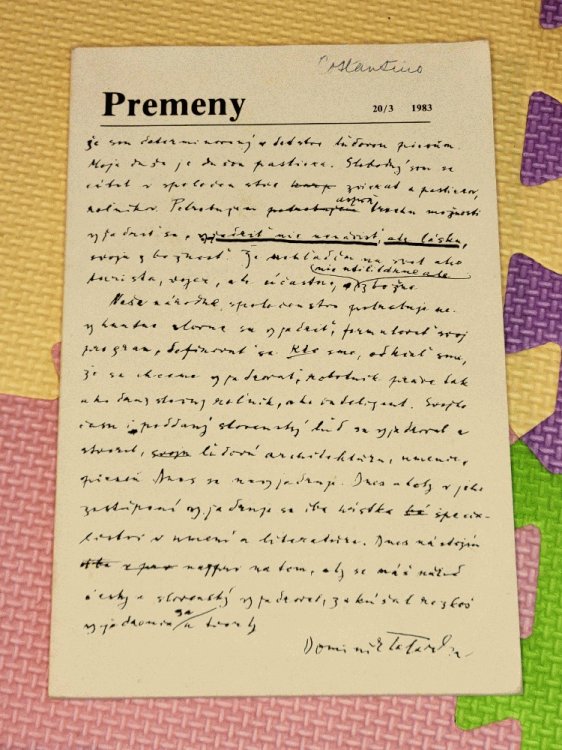 Premeny
20/3 1983
že som determinovaný v detstve ľudovou piesňou.
Moja duša je dušou pastiera. Slobodný som sa
cítil v spoločenstve zvierat a pastierov,
roľníkov. Potrebujem aspoň trochu možnosti
vyjadriť sa, vyjadriť nie nenávisť, ale lásku,
svoju zbožnosť. Že nehľadím na svet ako
turista, vojak, ale účastne, zbožne.
nie utilitárne ale
Naše národné spoločenstvo potrebuje ne-
vyhnutne slovne sa vyjadriť, formulovať svoj
program, definovať sa. Kto sme, odkiaľ sme,
že sa chceme vyjadrovať, robotník práve tak
ako družstevný roľník, ako inteligent. Svojho
času i poddaný slovenský ľud sa vyjadroval a
stvoril, svoju ľudovú architektúru, umenie,
pieseň. Dnes sa nevyjadruje. Dnes akoby v jeho
zastúpení vyjadruje sa iba hŕstka specia-
listov v umení a literatúre. Dnes nástojím
na tom, aby sa náš národ
český a slovenský vyjadroval, zakúšal rozkoš
vyjadrenia sa a tvorby
Dominik Tatarka